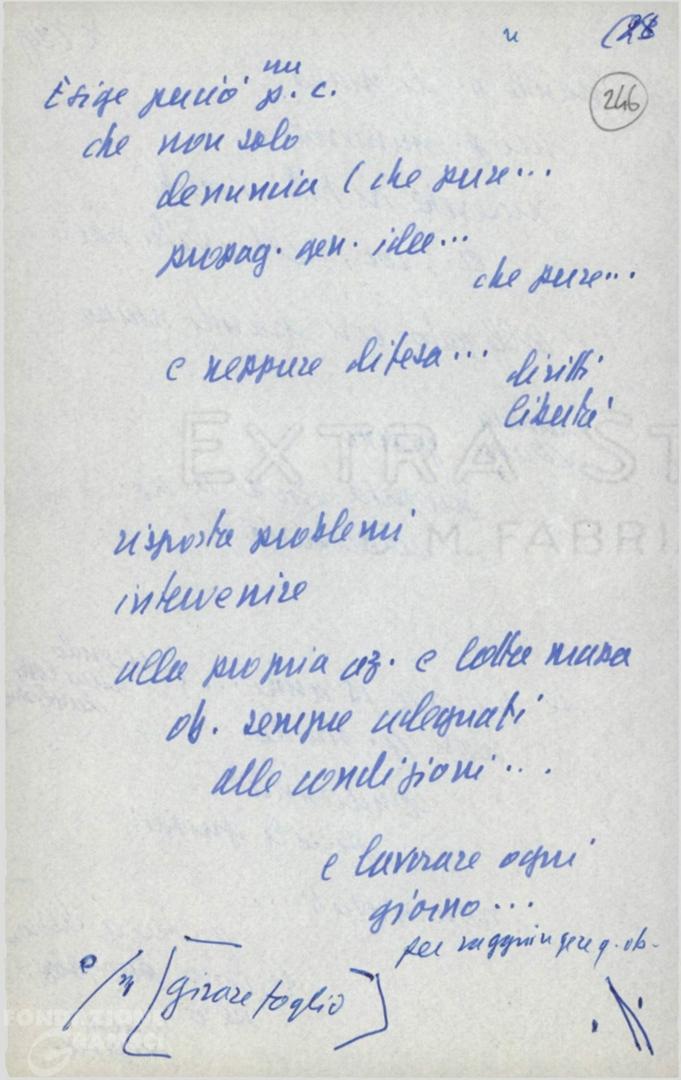 (28
246
nu
Esige perciò p.c.
che non solo
denuncia (che pure...
propag. gen. idee...
che pure...
e neppure difesa... diritti
libertà
EXTRA ST
M. FABRI
risposta problemi
intervenire
alla propria az. e lotta massa
ob. sempre adeguati
alle condizioni...
e lavorare ogni
giorno...
per raggiungere q. ob.
[girare foglio]
FONDAZIONE
GRAMSCI